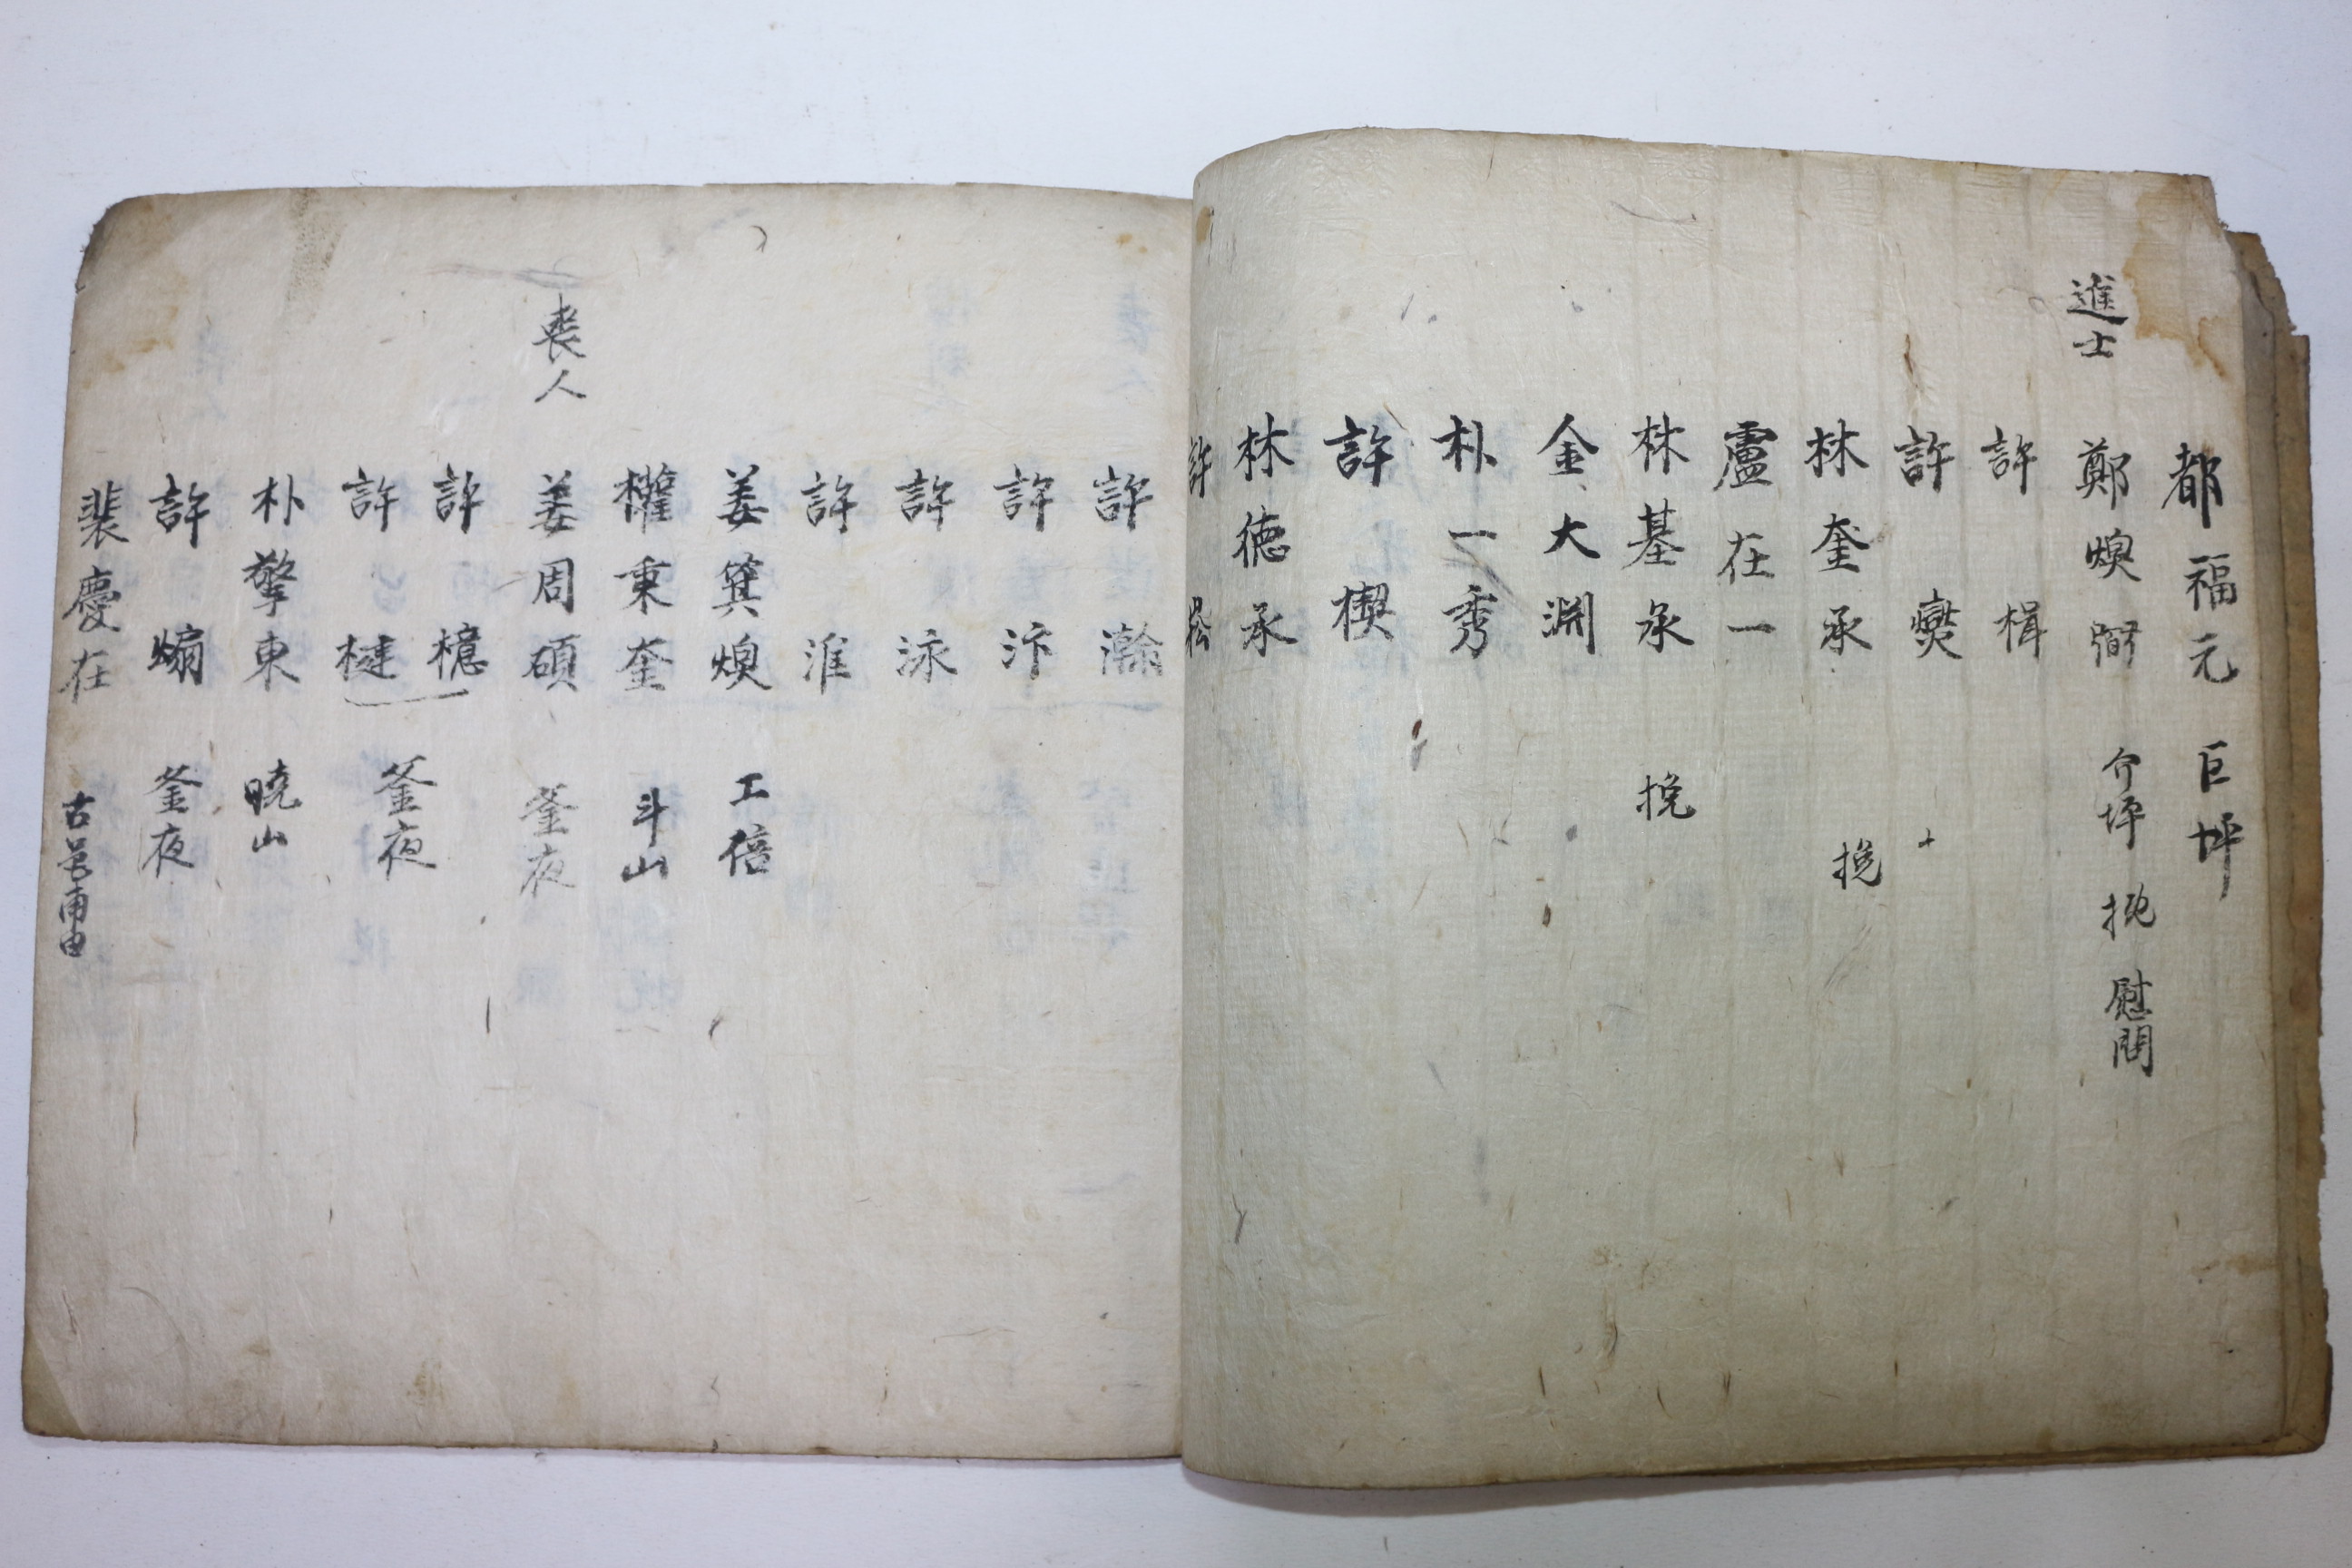 都福元 巨坪
進士 鄭煥 介坪 挽 慰問
許楫
許爕
林奎承 挽
盧在一
林基承 挽
金大淵
朴一秀
許楔
林德承
許崧
許瀚
許汴
許泳
許淮
姜箕煥 工倍
權秉奎 斗山
喪人 姜周碩 釜夜
許檍
許梿 釜夜
朴擎東 晩山
許煽 釜夜
裴慶在 古邑甫由